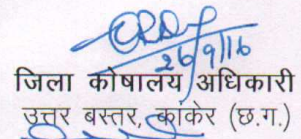 26/9/16
जिला कोषालय अधिकारी
उत्तर बस्तर, कांकेर (छ.ग.)